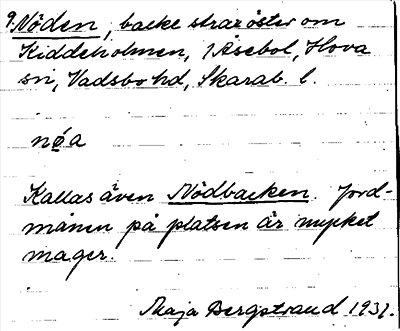 9. Nöden, backe strax öster om
Kiddeholmen, i Åsebol, Hova
sn, Vadsbo hd, Skarab. l.
nø̄a
Kallas även Nödbacken. Jord-
månen på platsen är mycket
mager.
Maja Bergstrand 1931.